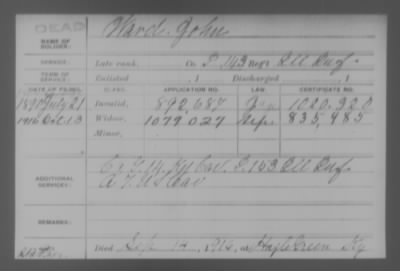 DEAD
Ward John
NAME OF SOLDIER:
SERVICE: Late rank, Co. I 143 Reg't Ill Inf.
TERM OF SERVICE: Enlisted , 1 Discharged , 1
DATE OF FILING. CLASS. APPLICATION NO. LAW. CERTIFICATE NO.
1890 July 21 Invalid, 892,687 1020.320
1916 Oct. 13 Widow, 1079.027 835,985
Minor,
ADDITIONAL SERVICES: Co. 14 Ky Cav. I. 153 Ill Inf
US Cav
REMARKS:
Died Sept 14, 1916, at Green Ky